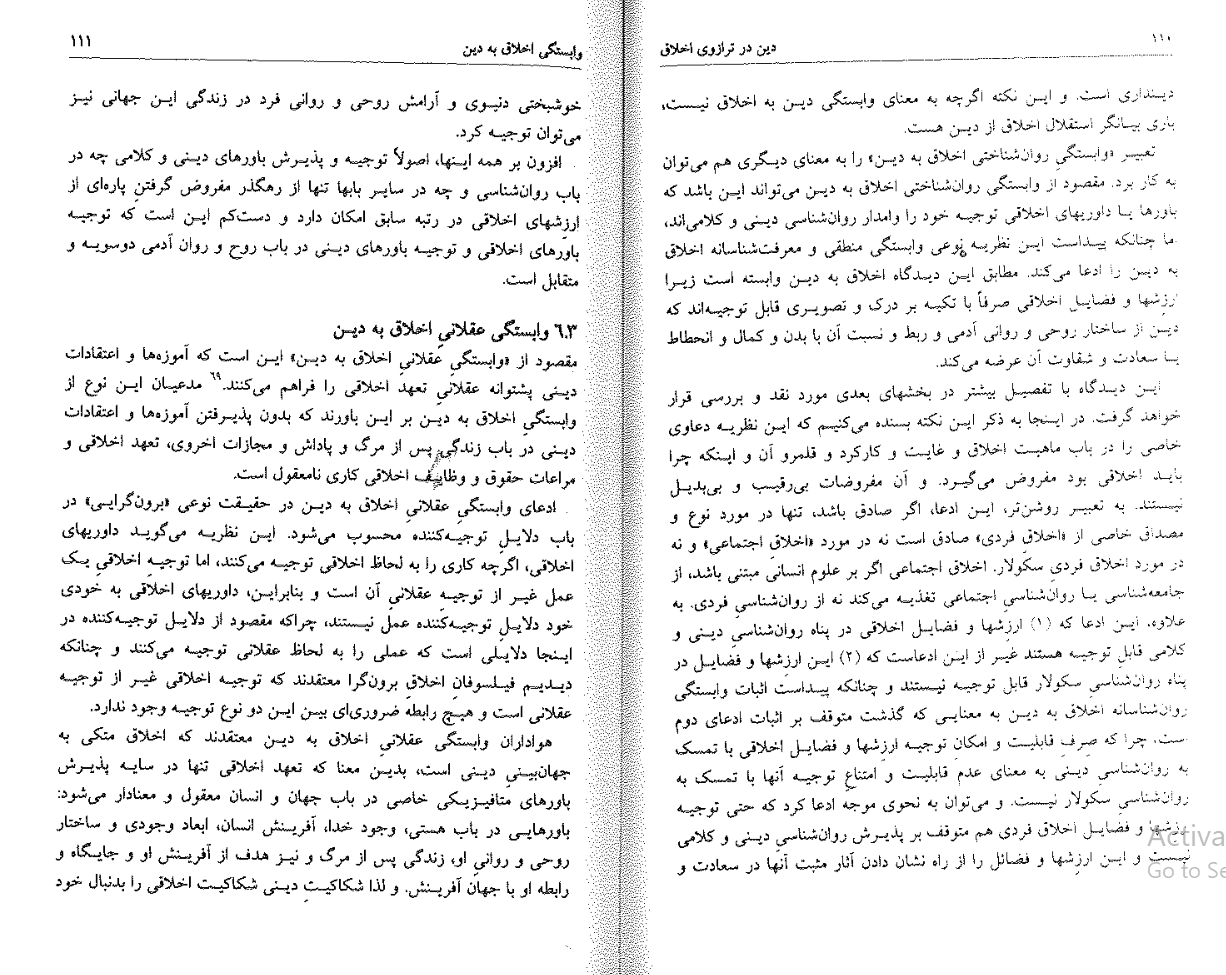 ۱۱۰
دین در ترازوی اخلاق
دینداری است. و این نکته اگرچه به معنای وابستگی دین به اخلاق نیست،
باری بیانگر استقلال اخلاق از دین هست.
تعبیر «وابستگیِ روان‌شناختی اخلاق به دین» را به معنای دیگری هم می‌توان
به کار برد. مقصود از وابستگی روان‌شناختی اخلاق به دین می‌تواند این باشد که
باورها یا داوریهای اخلاقی توجیه خود را وامدار روان‌شناسی دینی و کلامی‌اند،
اما چنانکه پیداست این نظریه نوعی وابستگی منطقی و معرفت‌شناسانه اخلاق
به دین را ادعا می‌کند. مطابق این دیدگاه اخلاق به دین وابسته است زیرا
ارزشها و فضایل اخلاقی صرفاً با تکیه بر درک و تصویری قابل توجیه‌اند که
دین از ساختار روحی و روانی آدمی و ربط و نسبت آن با بدن و کمال و انحطاط
یا سعادت و شقاوت آن عرضه می‌کند.
این دیدگاه با تفصیل بیشتر در بخشهای بعدی مورد نقد و بررسی قرار
خواهد گرفت. در اینجا به ذکر این نکته بسنده می‌کنیم که این نظریه دعاوی
خاصی را در باب ماهیت اخلاق و غایت و کارکرد و قلمرو آن و اینکه چرا
باید اخلاقی بود مفروض می‌گیرد. و آن مفروضات بی‌رقیب و بی‌بدیل
نیستند. به تعبیر روشن‌تر، این ادعا، اگر صادق باشد، تنها در مورد نوع و
مصداق خاصی از «اخلاق فردی» صادق است نه در مورد «اخلاق اجتماعی» و نه
در مورد اخلاق فردیِ سکولار. اخلاق اجتماعی اگر بر علوم انسانی مبتنی باشد، از
جامعه‌شناسی یا روان‌شناسیِ اجتماعی تغذیه می‌کند نه از روان‌شناسیِ فردی. به
علاوه، این ادعا که (۱) ارزشها و فضایل اخلاقی در پناه روان‌شناسیِ دینی و
کلامی قابل توجیه هستند غیر از این ادعاست که (۲) این ارزشها و فضایل در
پناه روان‌شناسیِ سکولار قابل توجیه نیستند و چنانکه پیداست اثبات وابستگی
روان‌شناسانه اخلاق به دین به معنایی که گذشت متوقف بر اثبات ادعای دوم
است، چرا که صِرفِ قابلیت و امکانِ توجیه ارزشها و فضایل اخلاقی با تمسک
به روان‌شناسی دینی به معنای عدم قابلیت و امتناع توجیه آنها با تمسک به
روان‌شناسی سکولار نیست. و می‌توان به نحوی موجه ادعا کرد که حتی توجیه
ارزشها و فضایل اخلاق فردی هم متوقف بر پذیرش روان‌شناسیِ دینی و کلامی
نیست و این ارزشها و فضائل را از راه نشان دادن آثار مثبت آنها در سعادت و
Activa
Go to Se
وابستگی اخلاق به دین
۱۱۱
خوشبختی دنیوی و آرامش روحی و روانی فرد در زندگی این جهانی نیز
می‌توان توجیه کرد.
افزون بر همه اینها، اصولاً توجیه و پذیرش باورهای دینی و کلامی چه در
باب روان‌شناسی و چه در سایر بابها تنها از رهگذر مفروض گرفتنِ پاره‌ای از
ارزشهای اخلاقی در رتبه سابق امکان دارد و دست‌کم این است که توجیه
باورهای اخلاقی و توجیه باورهای دینی در باب روح و روان آدمی دوسویه و
متقابل است.
۶.۳ وابستگی عقلانیِ اخلاق به دین
مقصود از «وابستگیِ عقلانیِ اخلاق به دین» این است که آموزه‌ها و اعتقادات
دینی پشتوانه عقلانیِ تعهد اخلاقی را فراهم می‌کنند.۶۹ مدعیان این نوع از
وابستگیِ اخلاق به دین بر این باورند که بدون پذیرفتن آموزه‌ها و اعتقادات
دینی در باب زندگی پس از مرگ و پاداش و مجازات اخروی، تعهد اخلاقی و
مراعات حقوق و وظایف اخلاقی کاری نامعقول است.
ادعای وابستگیِ عقلانیِ اخلاق به دین در حقیقت نوعی «برون‌گرایی» در
باب دلایلِ توجیه‌کننده محسوب می‌شود. این نظریه می‌گوید داوریهای
اخلاقی، اگرچه کاری را به لحاظ اخلاقی توجیه می‌کنند، اما توجیه اخلاقیِ یک
عمل غیر از توجیهِ عقلانیِ آن است و بنابراین، داوریهای اخلاقی به خودی
خود دلایلِ توجیه‌کننده عمل نیستند، چراکه مقصود از دلایل توجیه‌کننده در
اینجا دلایلی است که عملی را به لحاظ عقلانی توجیه می‌کنند و چنانکه
دیدیم فیلسوفانِ اخلاقِ برون‌گرا معتقدند که توجیه اخلاقی غیر از توجیه
عقلانی است و هیچ رابطه ضروری‌ای بین این دو نوع توجیه وجود ندارد.
هواداران وابستگی عقلانیِ اخلاق به دین معتقدند که اخلاق متکی به
جهان‌بینیِ دینی است، بدین معنا که تعهد اخلاقی تنها در سایه پذیرش
باورهای متافیزیکی خاصی در باب جهان و انسان معقول و معنادار می‌شود:
باورهایی در باب هستی، وجود خدا، آفرینش انسان، ابعاد وجودی و ساختار
روحی و روانیِ او، زندگی پس از مرگ و نیز هدف از آفرینش او و جایگاه و
رابطه او با جهان آفرینش. و لذا شکاکیتِ دینی شکاکیت اخلاقی را بدنبال خود